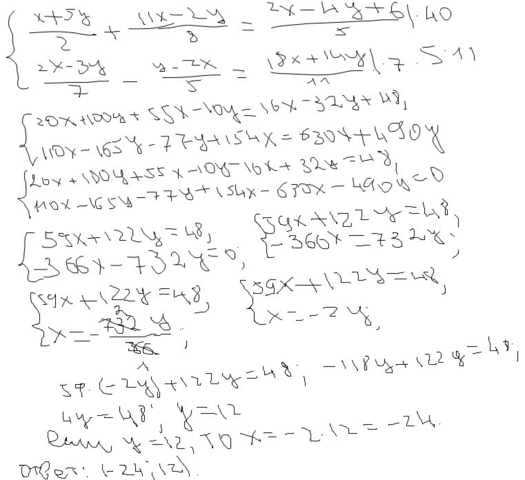 { (x+5y)/2 + (11x−2y)/8 = (2x−4y+6)/5 |·40
{ (2x−3y)/7 − (y−2x)/5 = (18x+14y)/11 |·7·5·11
{ 20x+100y+55x−10y=16x−32y+48,
{ 110x−165y−77y+154x=630x+490y
{ 20x+100y+55x−10y−16x+32y=48,
{ 110x−165y−77y+154x−630x−490y=0
{ 59x+122y=48, { 59x+122y=48,
{ −366x−732y=0; { −366x=732y;
{ 59x+122y=48, { 59x+122y=48,
{ x=−732y/366; { x=−2y;
59·(−2y)+122y=48; −118y+122y=48,
4y=48; y=12
если y=12, то x=−2·12=−24.
ответ: (−24; 12).